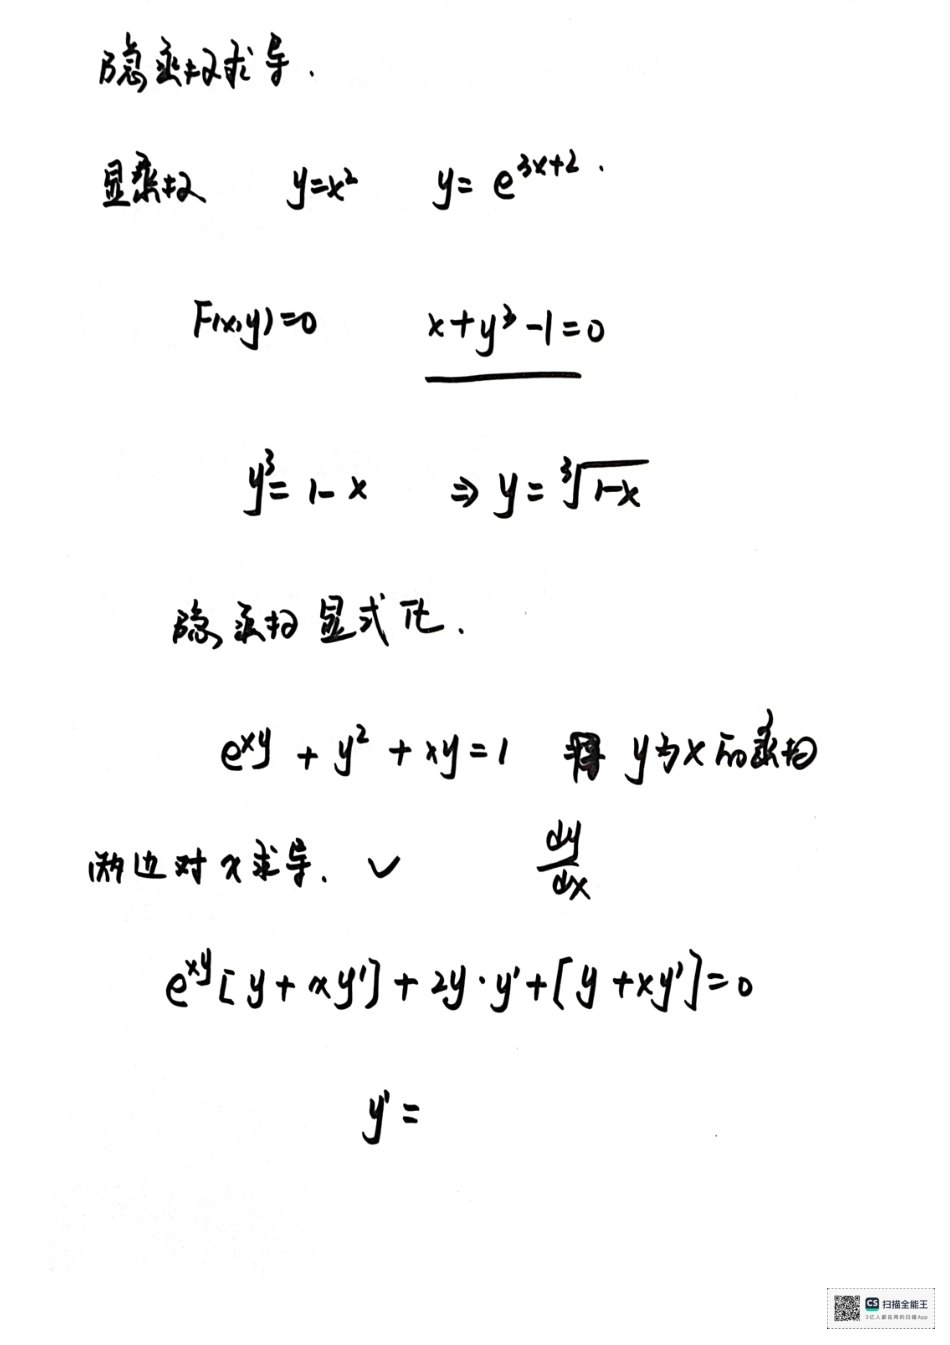 隐函数求导.
显函数 y=x² y= e^{3x+2}.
F(x,y)=0 x+y³-1=0
y³= 1-x ⇒ y= ³√(1-x)
隐函数显式化.
e^{xy} + y² + xy=1 将 y为x的函数
两边对x求导. ✓ dy/dx
e^{xy}[y+xy']+2y·y'+[y+xy']=0
y'=
CS 扫描全能王
3亿人都在用的扫描App